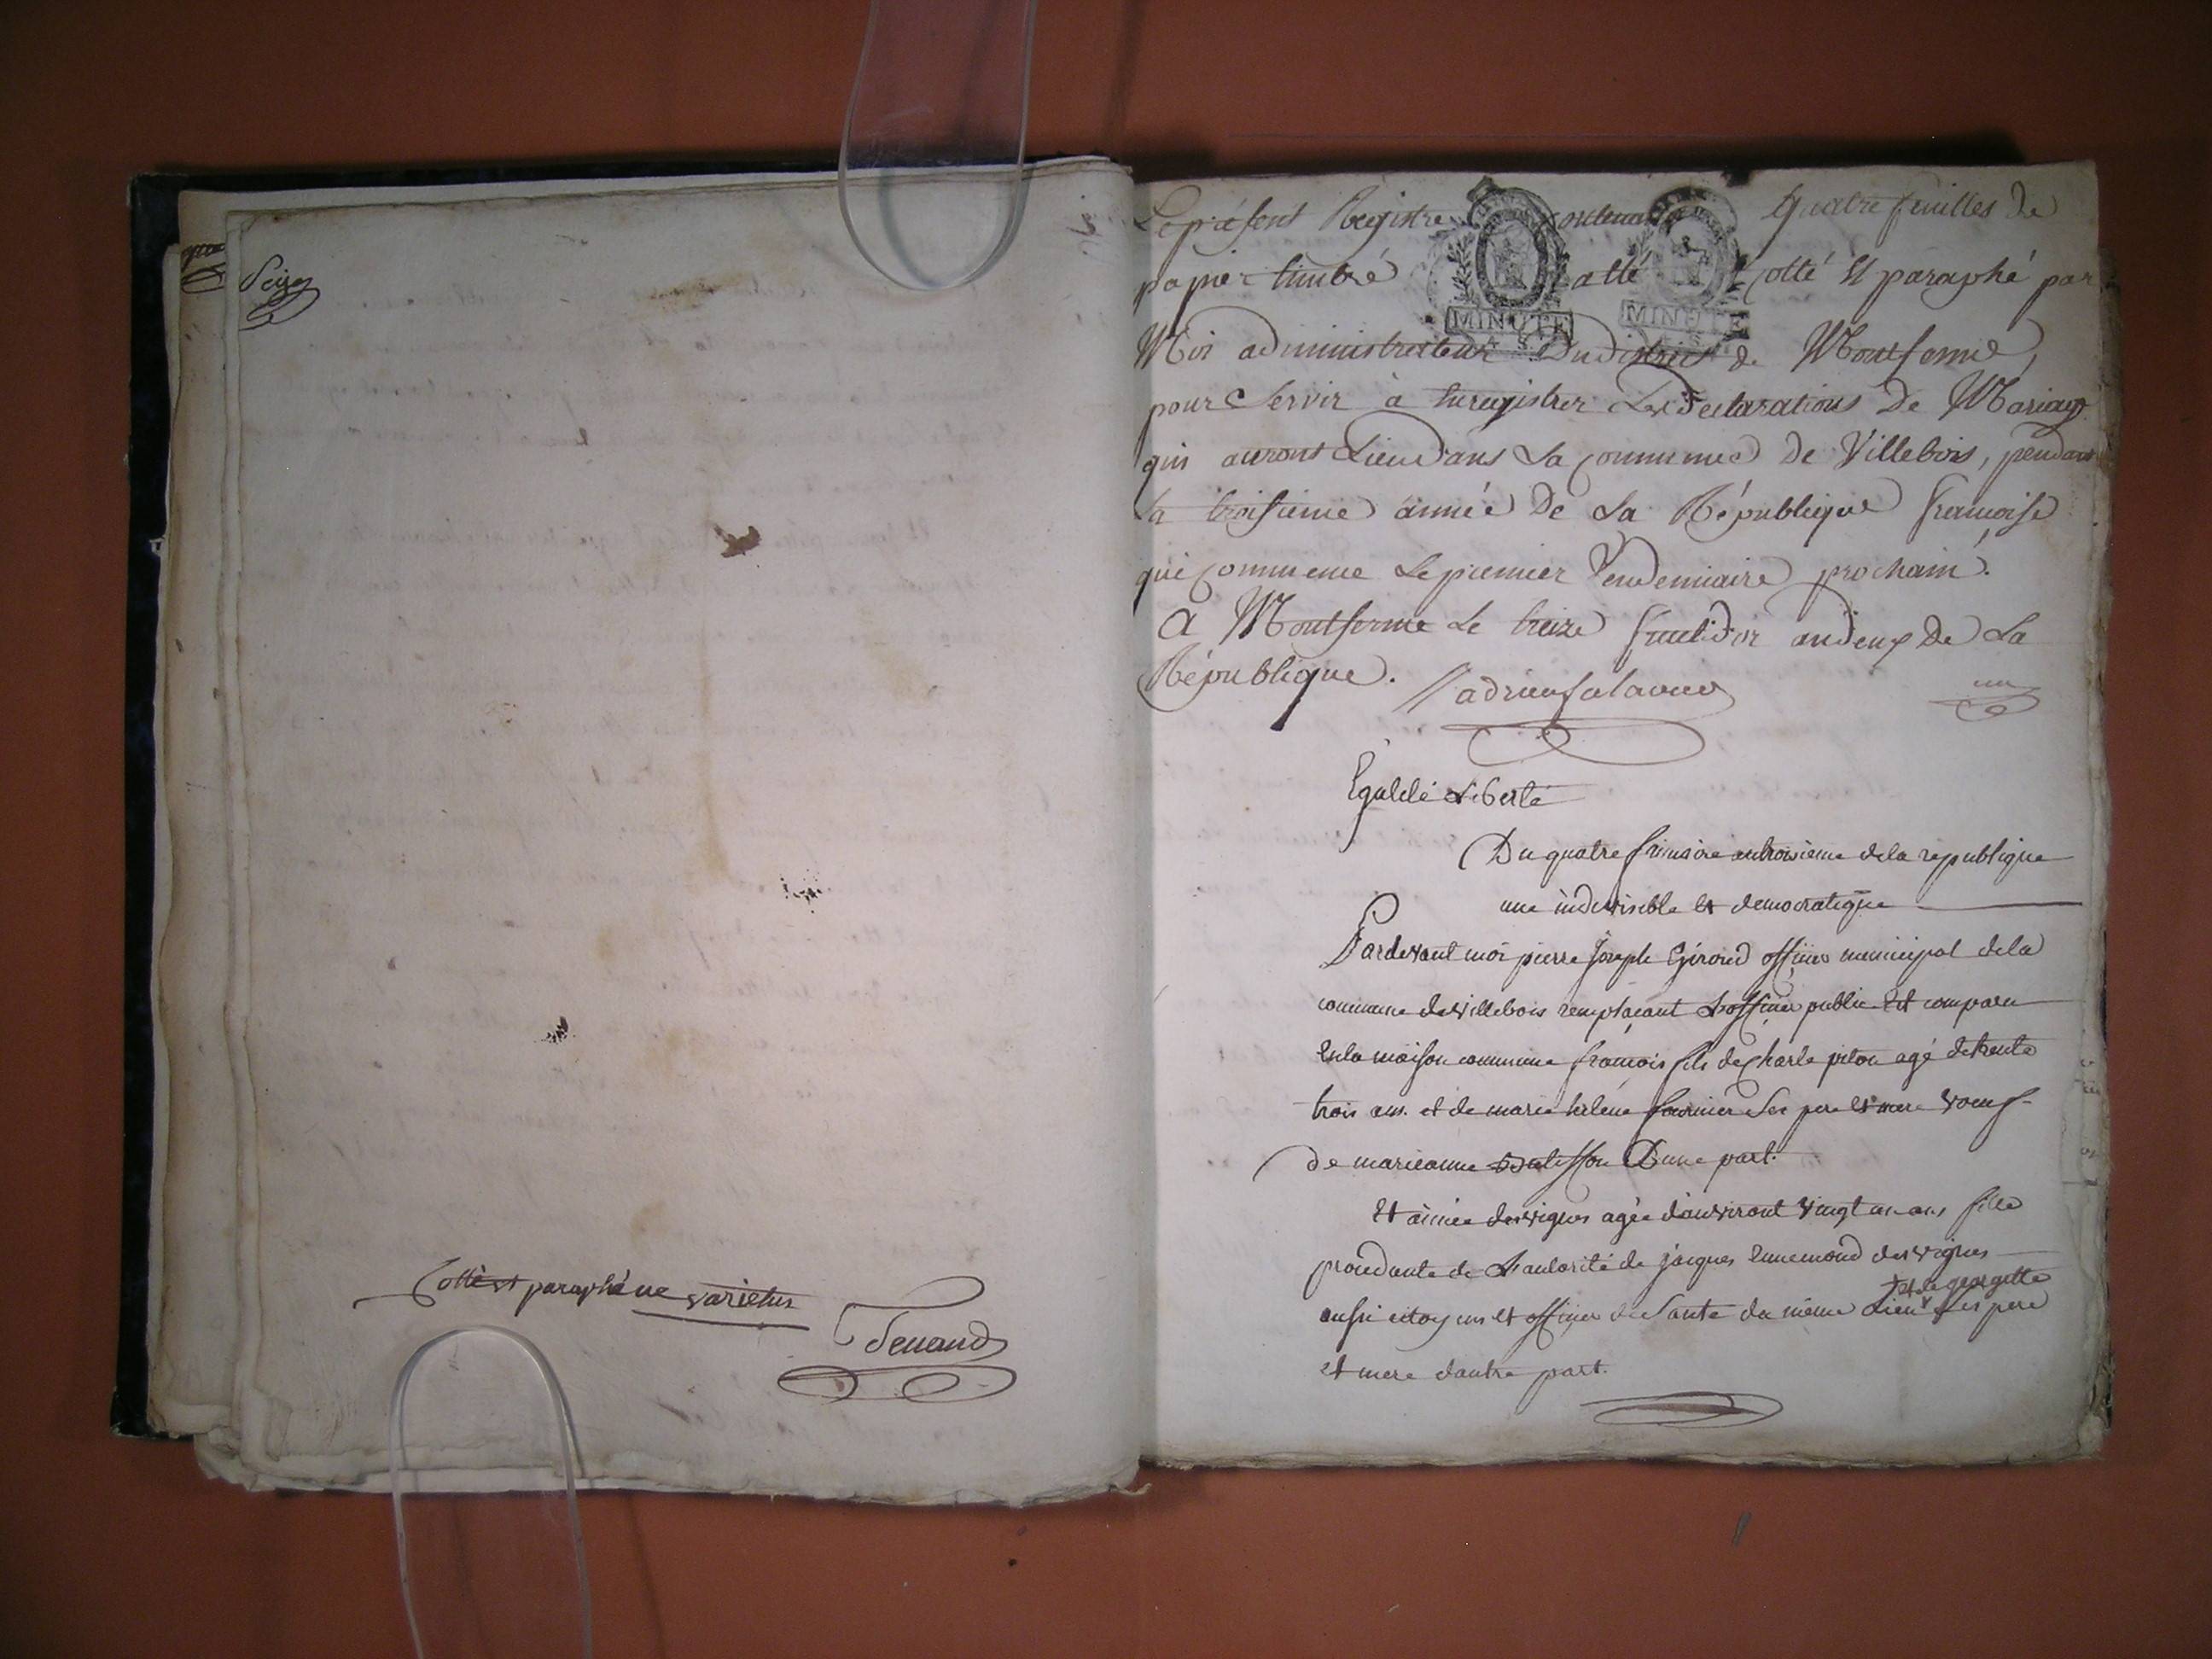 Seize
Cotté et paraphé ne varietur
Tenand
Le présent Registre contenant quatre feuilles de
papier timbré a été cotté Et paraphé par
Moi administrateur Du district de Montferme,
pour Servir à Enregistrer Les Declarations De Mariage
qui auront Lieu dans La Commune De Villebois, pendant
La troisieme année De La République françoise
qui Commence Le premier Vendemiaire prochain.
A Montferme Le treize fructidor an deux De La
République.
un
Egalité Liberté
Du quatre frimaire an troisieme dela republique
une indivisible Et democratique
Pardevant moi pierre Joseph Giroud officier municipal dela
commune de villebois remplaçant L'officier public Est comparu
En la maison commune françois fils de Charle piton agé de trente
trois ans. et de marie helene fournier Ses pere Et mere veuf
de marieanne D'une part.
Et aimée desvignes agée d'anviront vingt un ans fille
procedante de L'autorité de jacques Ennemond desvignes
aussi citoyens Et officier de Santé du même Lieu Ses pere
+ et de georgette
et mere dautre part.
MINUTE
MINUTE